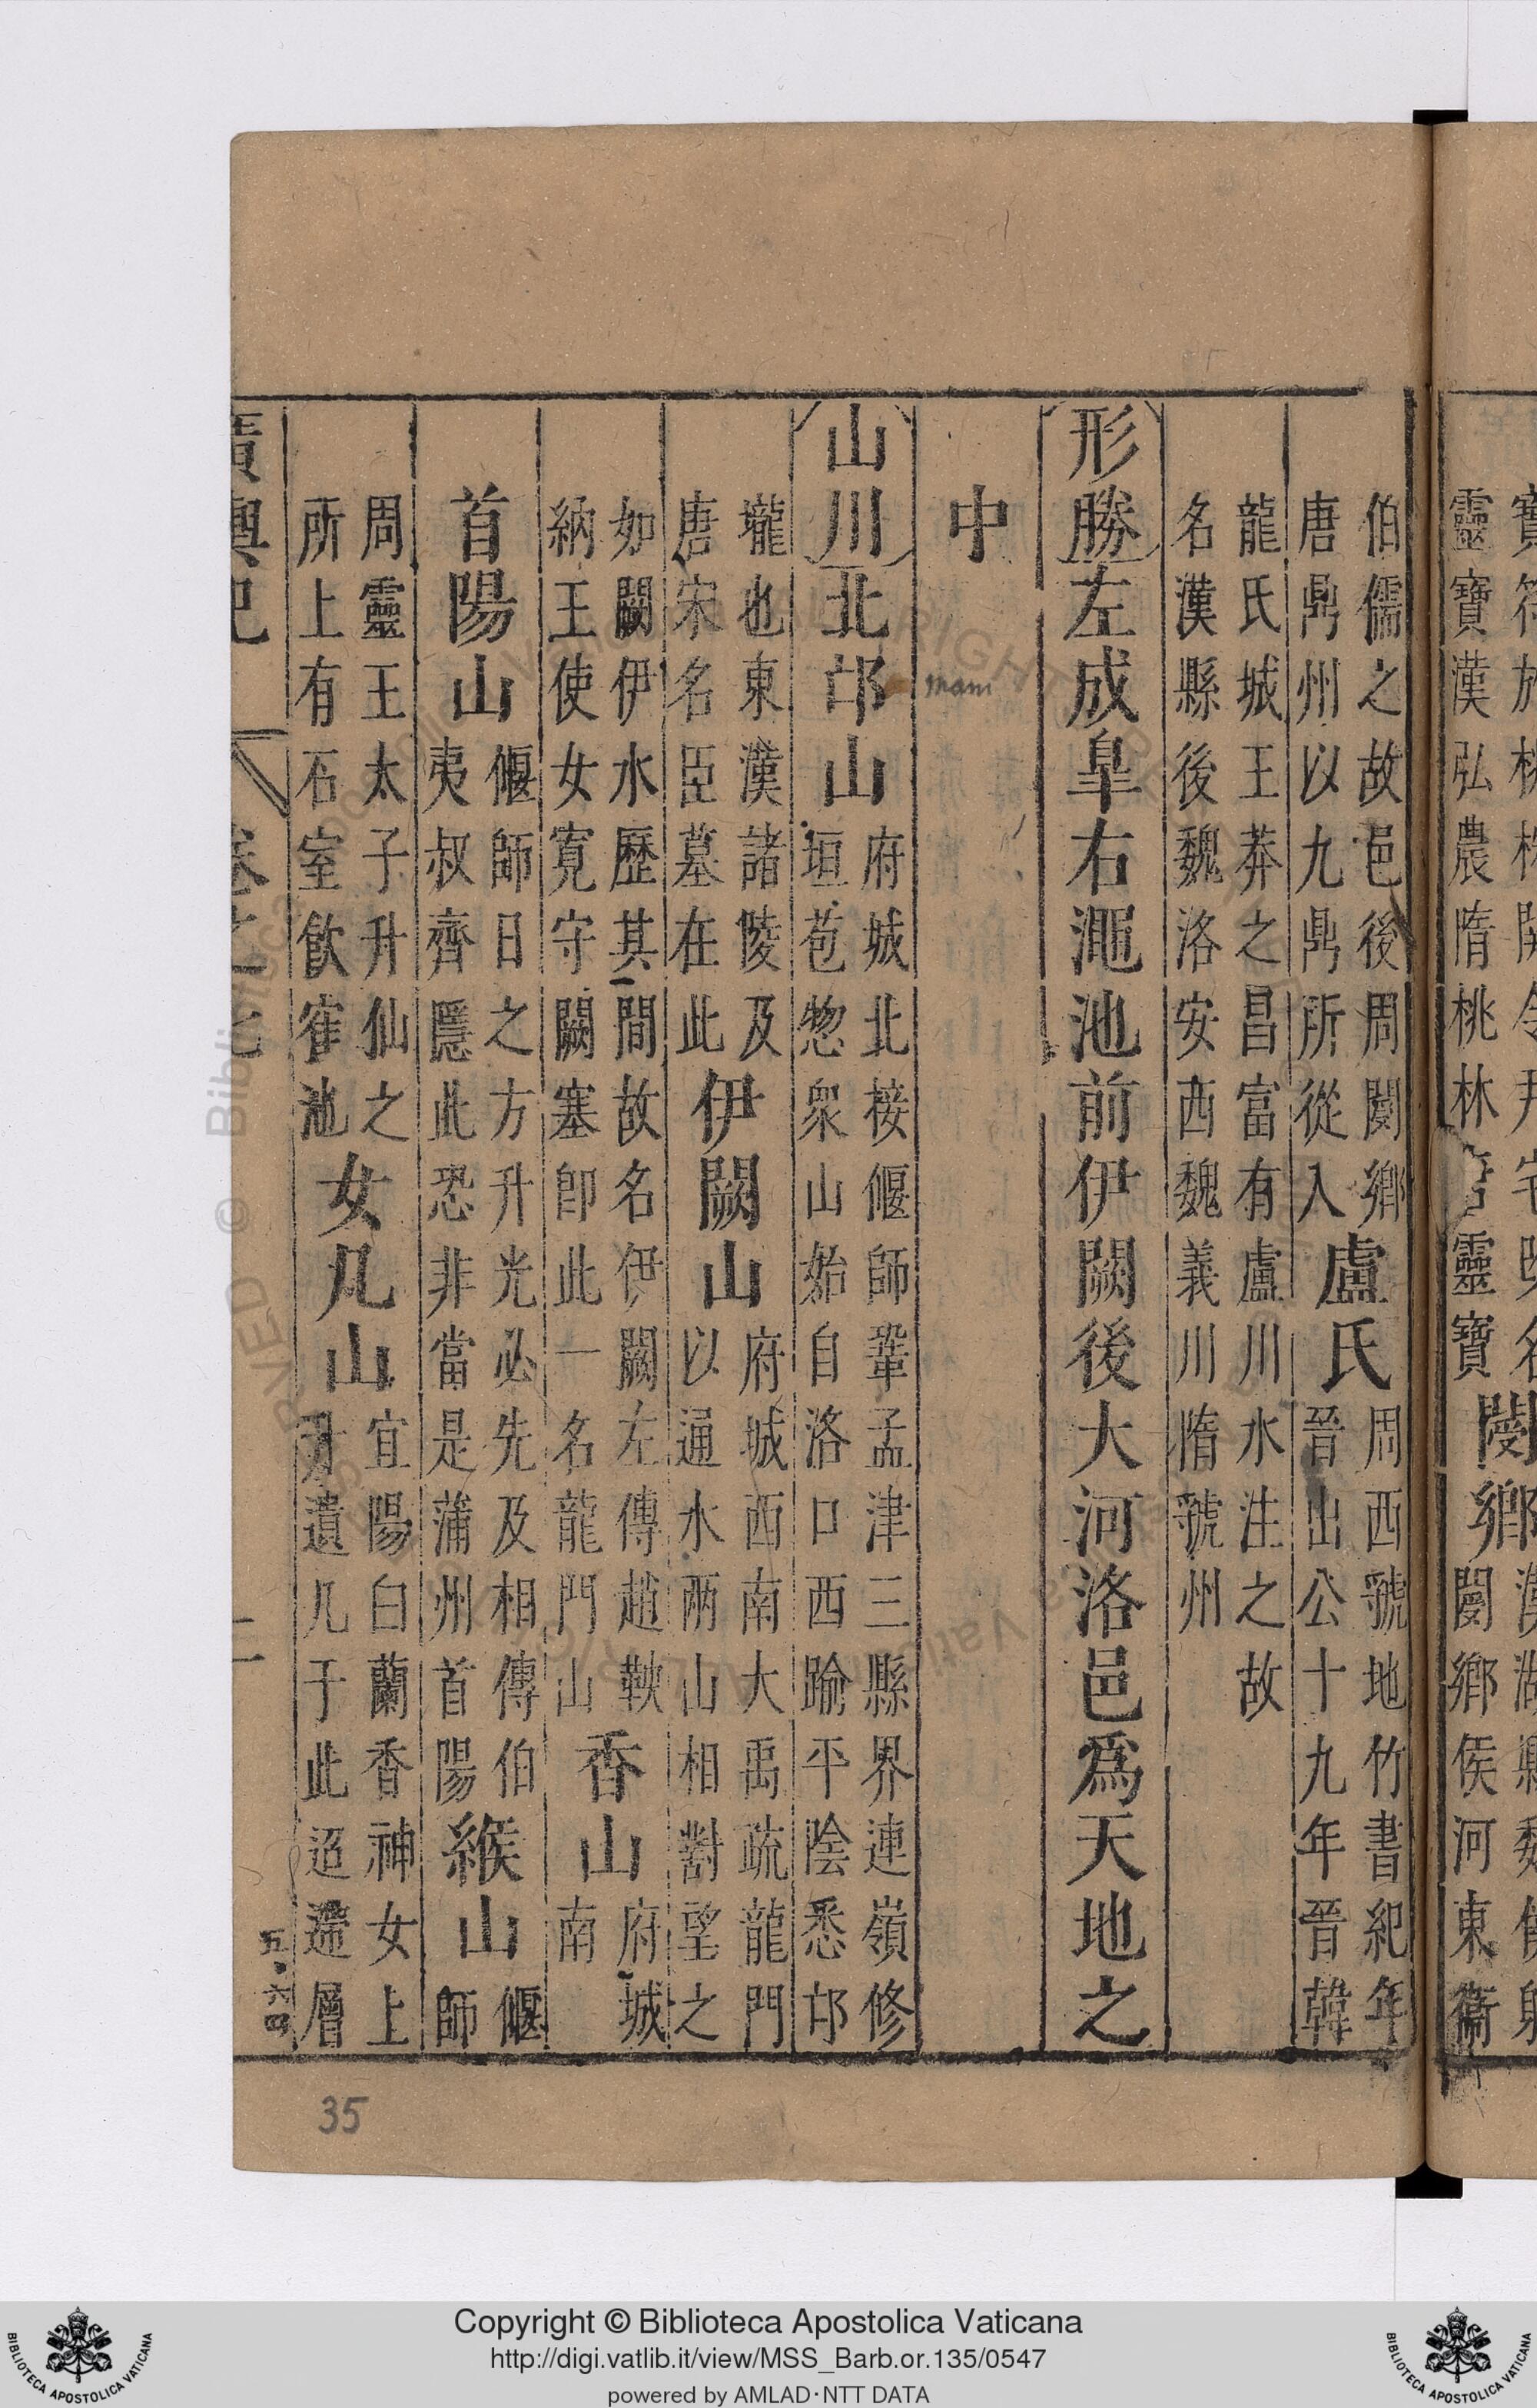 靈寶漢弘農隋桃林
靈寶
閿鄉
閿鄉侯河東衞
伯儒之故邑後周閿鄉
唐鼎州以九鼎所從入
盧氏
周西虢地竹書紀年
晉出公十九年晉韓
龍氏城王莽之昌富有盧川水注之故
名漢縣後魏洛安西魏義川隋虢州
形勝左成臯右澠池前伊闕後大河洛邑爲天地之
中
mam
山川北邙山
府城北接偃師鞏孟津三縣界連嶺修
垣苞惣衆山始自洛口西踰平陰悉邙
壠也東漢諸陵及
唐宋名臣墓在此
伊闕山
府城西南大禹疏龍門
以通水两山相對望之
如闕伊水歷其間故名伊闕左傳趙鞅
納王使女寛守闕塞卽此一名龍門山
香山
府城
南
首陽山
偃師日之方升光必先及相傳伯
夷叔齊隱此恐非當是蒲州首陽
緱山
偃
師
周靈王太子升仙之
所上有石室飲寉池
女几山
宜陽白蘭香神女上
升遺几于此迢遞層
廣輿記
卷之七
二
五·六四
35
Copyright © Biblioteca Apostolica Vaticana
http://digi.vatlib.it/view/MSS_Barb.or.135/0547
powered by AMLAD·NTT DATA
BIBLIOTECA APOSTOLICA VATICANA
BIBLIOTECA APOSTOLICA VATICANA